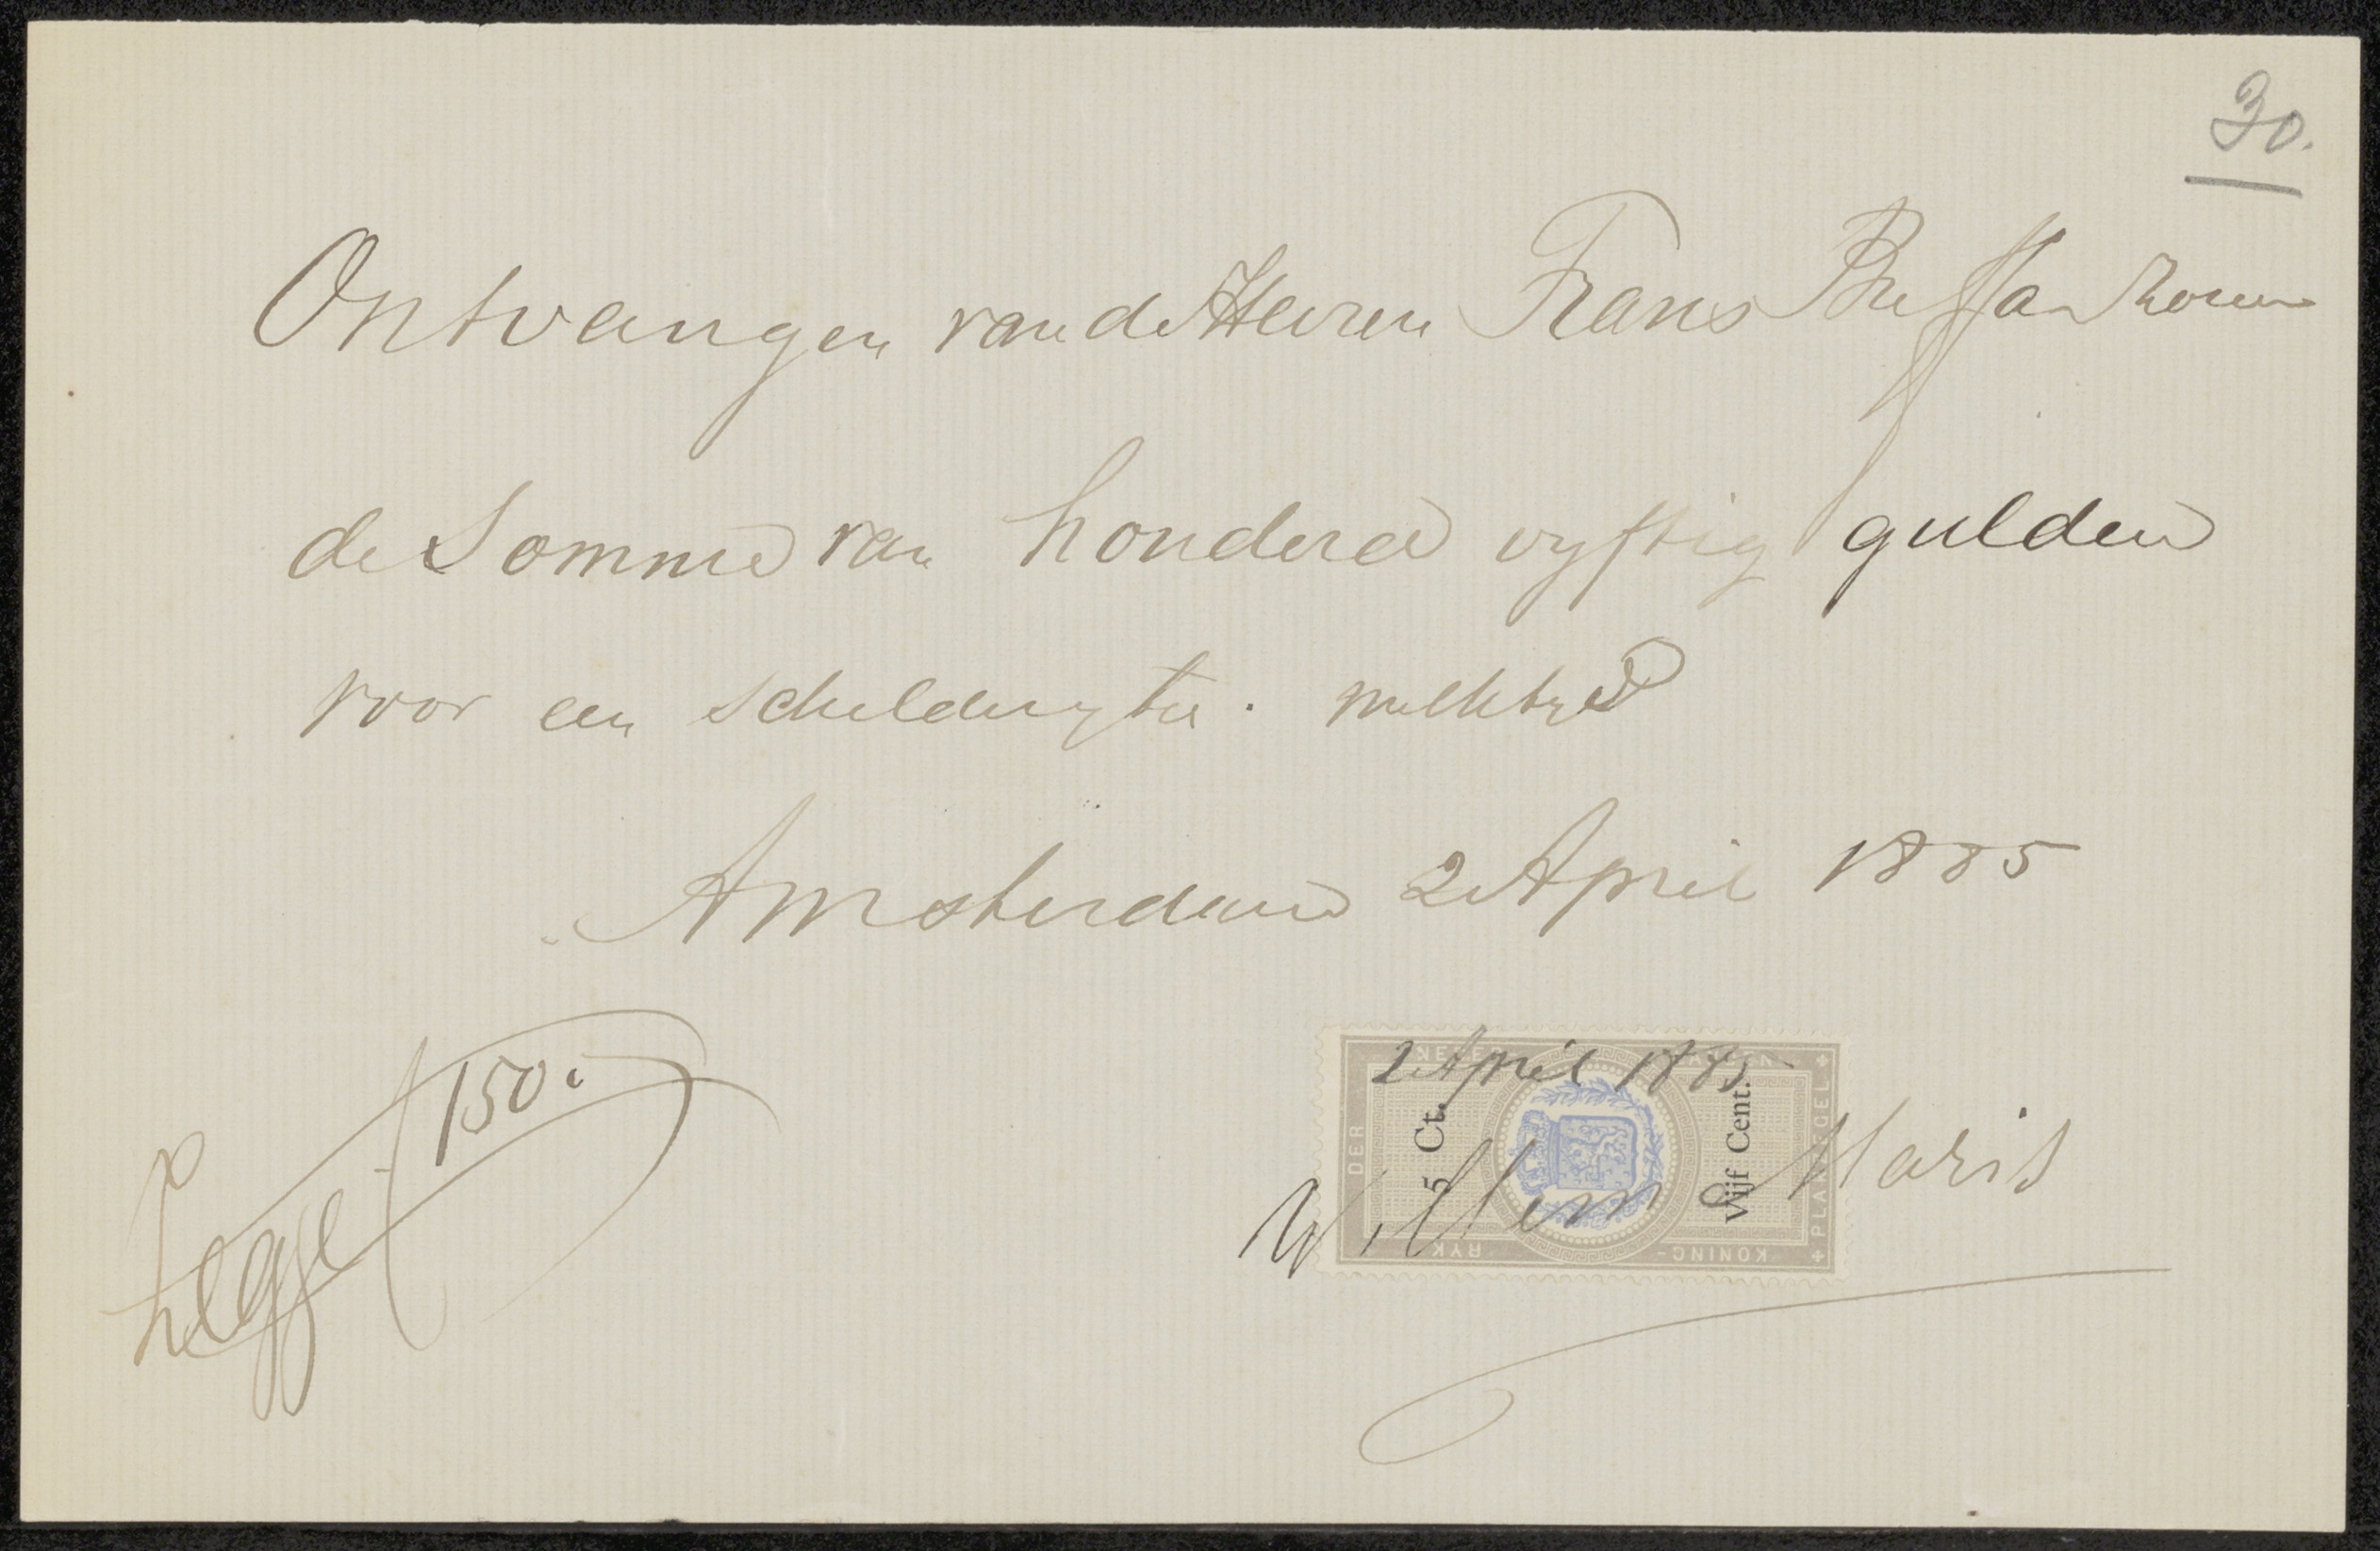 30.
Ontvangen van de Heeren Frans Buffa Zonen
de Somme van honderd vyftig gulden
voor een schilderytie. melktyd
Amsterdam 2 April 1885
Zegge f 150.
2 April 1885
Willem Maris
5 Ct.
Vijf Cent.
DER
NEDERLANDEN
PLAKZEGEL
KONING-
RYK